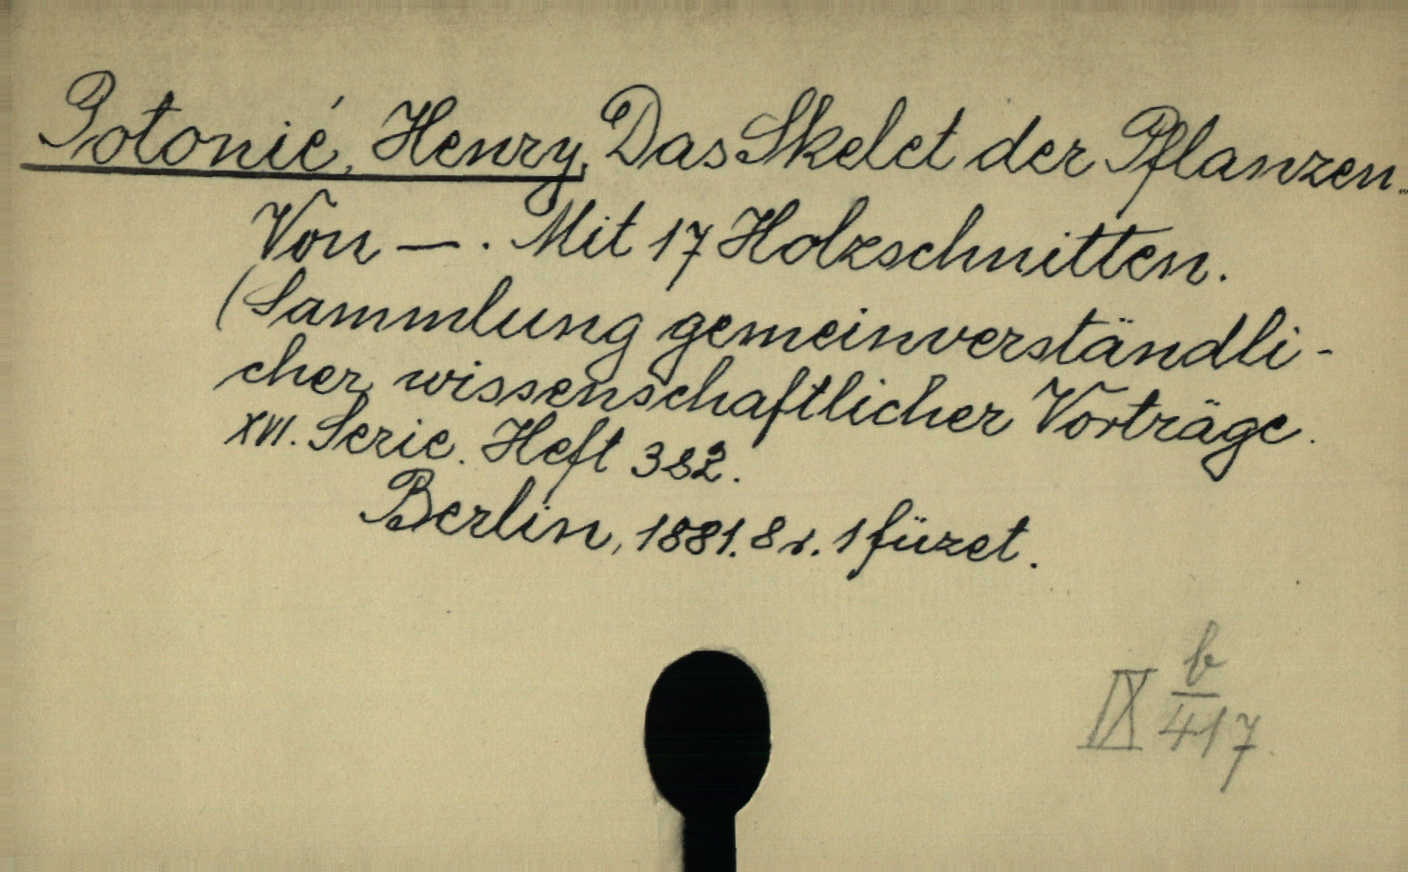 Potonié, Henry, Das Skelet der Pflanzen.
Von —. Mit 17 Holzschnitten.
(Sammlung gemeinverständli-
cher wissenschaftlicher Vorträge.
XVI. Serie. Heft 382.
Berlin, 1881. 8 r. 1 füzet.
IX b/417.